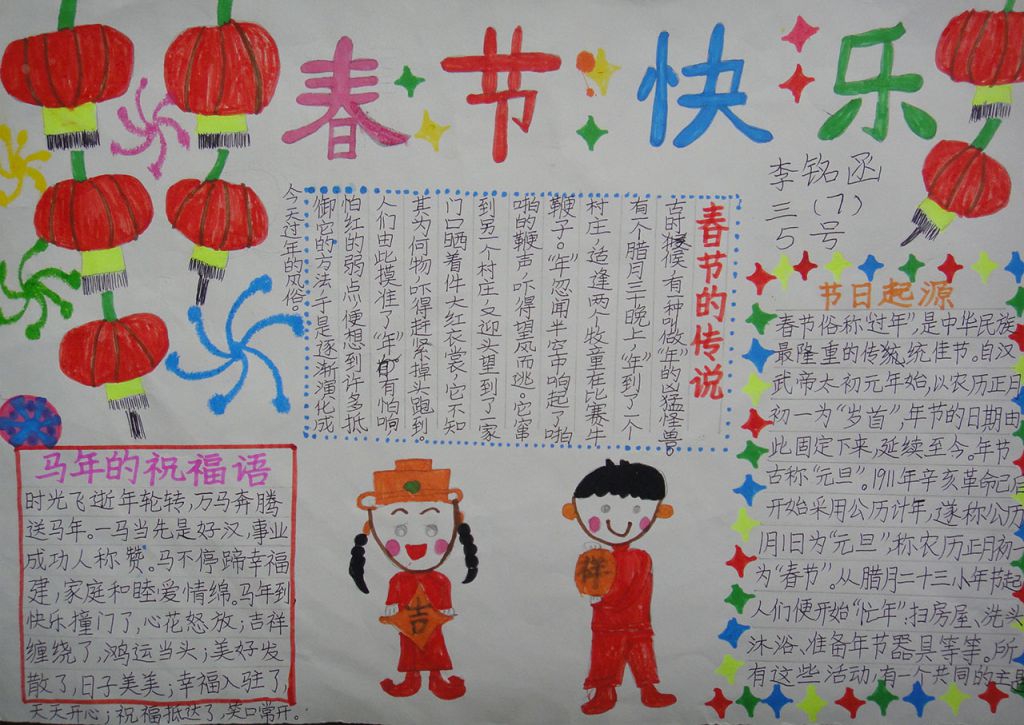 春节快乐
李铭函
三（7）
5号
春节的传说
古时候，有一种叫做“年”的凶猛怪兽。
有个腊月三十晚上，“年”到了一个
村庄，适逢两个牧童在比赛牛
鞭子。“年”忽闻半空中响起了啪
啪的鞭声，吓得望风而逃。它窜
到另一个村庄，又迎头望到了一家
门口晒着件大红衣裳，它不知
其为何物，吓得赶紧掉头跑到。
人们由此摸准了“年”有怕响
怕红的弱点，便想到许多抵
御它的方法，于是逐渐演化成
今天过年的风俗。
节日起源
春节俗称“过年”，是中华民族
最隆重的传统佳节。自汉
武帝太初元年始，以农历正月
初一为“岁首”，年节的日期由
此固定下来，延续至今。年节
古称“元旦”。1911年辛亥革命已后
开始采用公历计年，遂称公历
1月1日为“元旦”，称农历正月初一
为“春节”。从腊月二十三小年节起
人们便开始“忙年”：扫房屋、洗头
沐浴、准备年节器具等等。所
有这些活动，有一个共同的主题
马年的祝福语
时光飞逝年轮转，万马奔腾
送马年。一马当先是好汉，事业
成功人称赞。马不停蹄幸福
建，家庭和睦爱情绵。马年到
快乐撞门了，心花怒放；吉祥
缠绕了，鸿运当头；美好发
散了，日子美美；幸福入驻了，
天天开心；祝福抵达了，笑口常开。
吉
祥